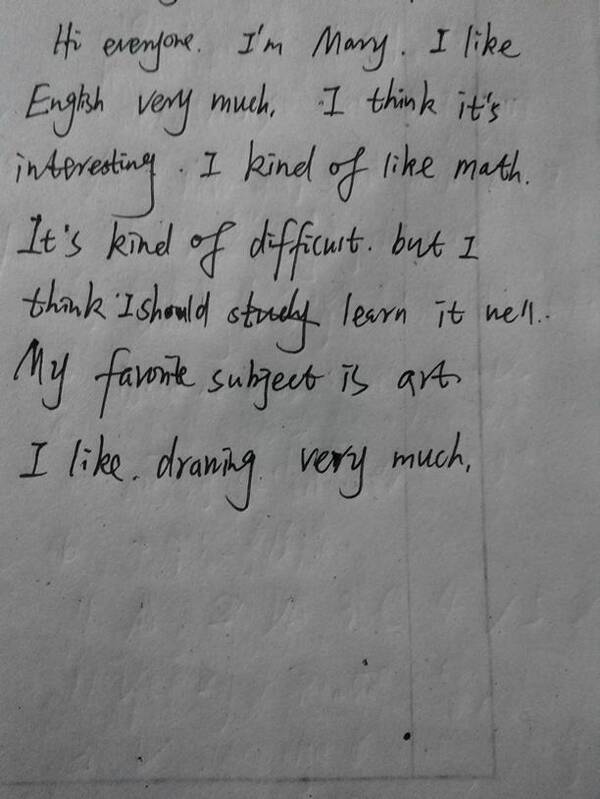 Hi everyone. I'm Mary. I like
English very much. I think it's
interesting. I kind of like math.
It's kind of difficult. but I
think I should study learn it well..
My favorite subject is art
I like. drawing very much,